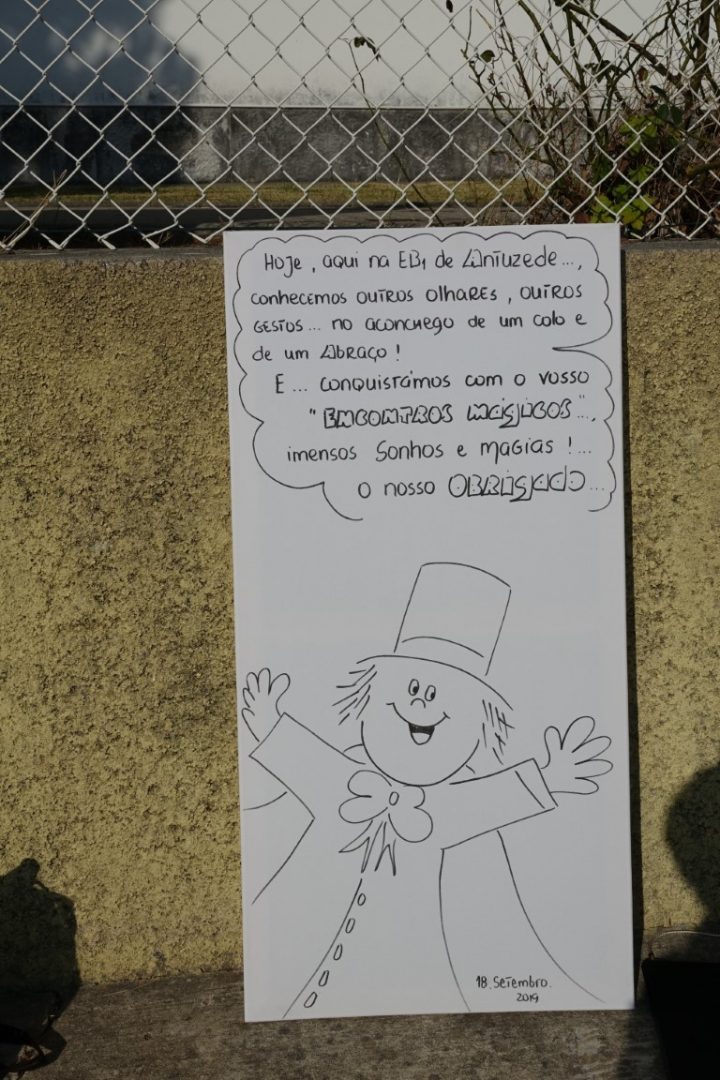 Hoje, aqui na EB1 de Antuzede...,
conhecemos outros olhares, outros
gestos... no aconchego de um colo e
de um Abraço!
E... conquistámos com o vosso
"ENCONTROS MÁGICOS"...,
imensos Sonhos e magias!...
o nosso OBRIGADO...
18. Setembro.
2019